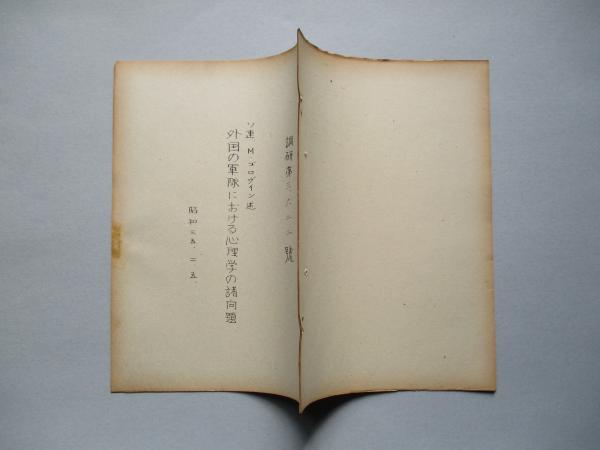 調研第三六二二號
ソ連、M、ゴロヴイン述
外国の軍隊における心理学の諸问題
昭和三五、二、五、